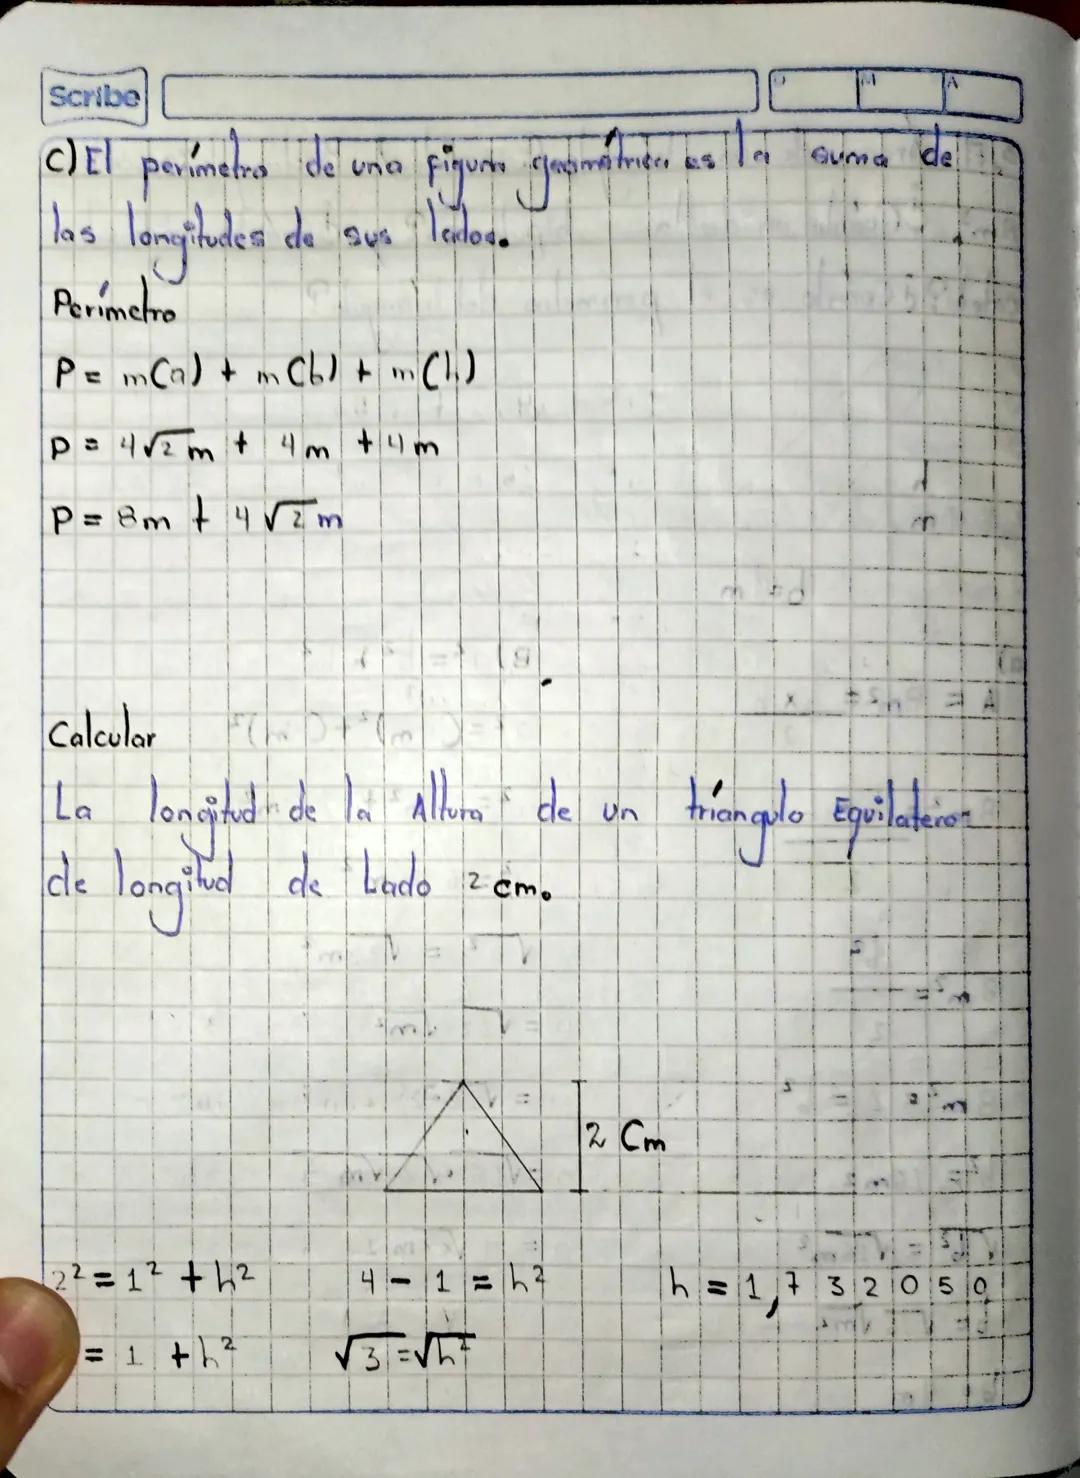 Scribe
D M A
C) El perímetro de una figura geométrica es la suma de
las longitudes de sus lados.
Perímetro
P = m(a) + m(b) + m(h)
P = 4√2 m + 4m + 4m
P = 8m + 4√2 m
Calcular
La longitud de la Altura de un tríangulo Equilatero
de longitud de Lado 2 cm.
2 Cm
2² = 1² + h² 4 - 1 = h² h = 1,732050
= 1 + h² √3 = √h²